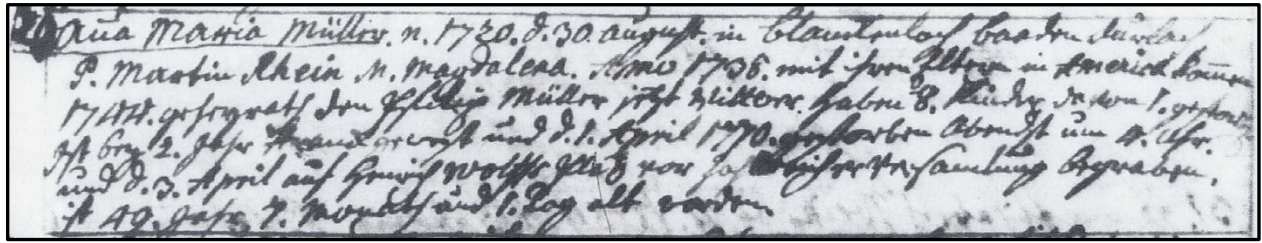 Ana Maria Müller. n. 1720. d. 30. august. in blanckenloch baaden durlach
P. Martin Rhein M. Magdalena. Anno 1736. mit ihren Eltern in America kommen
1744. geheyrath den Philip Müller jetzt Wittwer. haben 8. Kinder davon 1. gestorben
Ist bey 2. Jahr kranck gewest und d. 1. April 1770. gestorben Abendst um 4. Uhr.
und d. 3. April auf Henrich Wolffs Platz vor Volckreicher versamlung begraben.
ist 49. Jahr 7. Monath und 1. Tag alt worden.